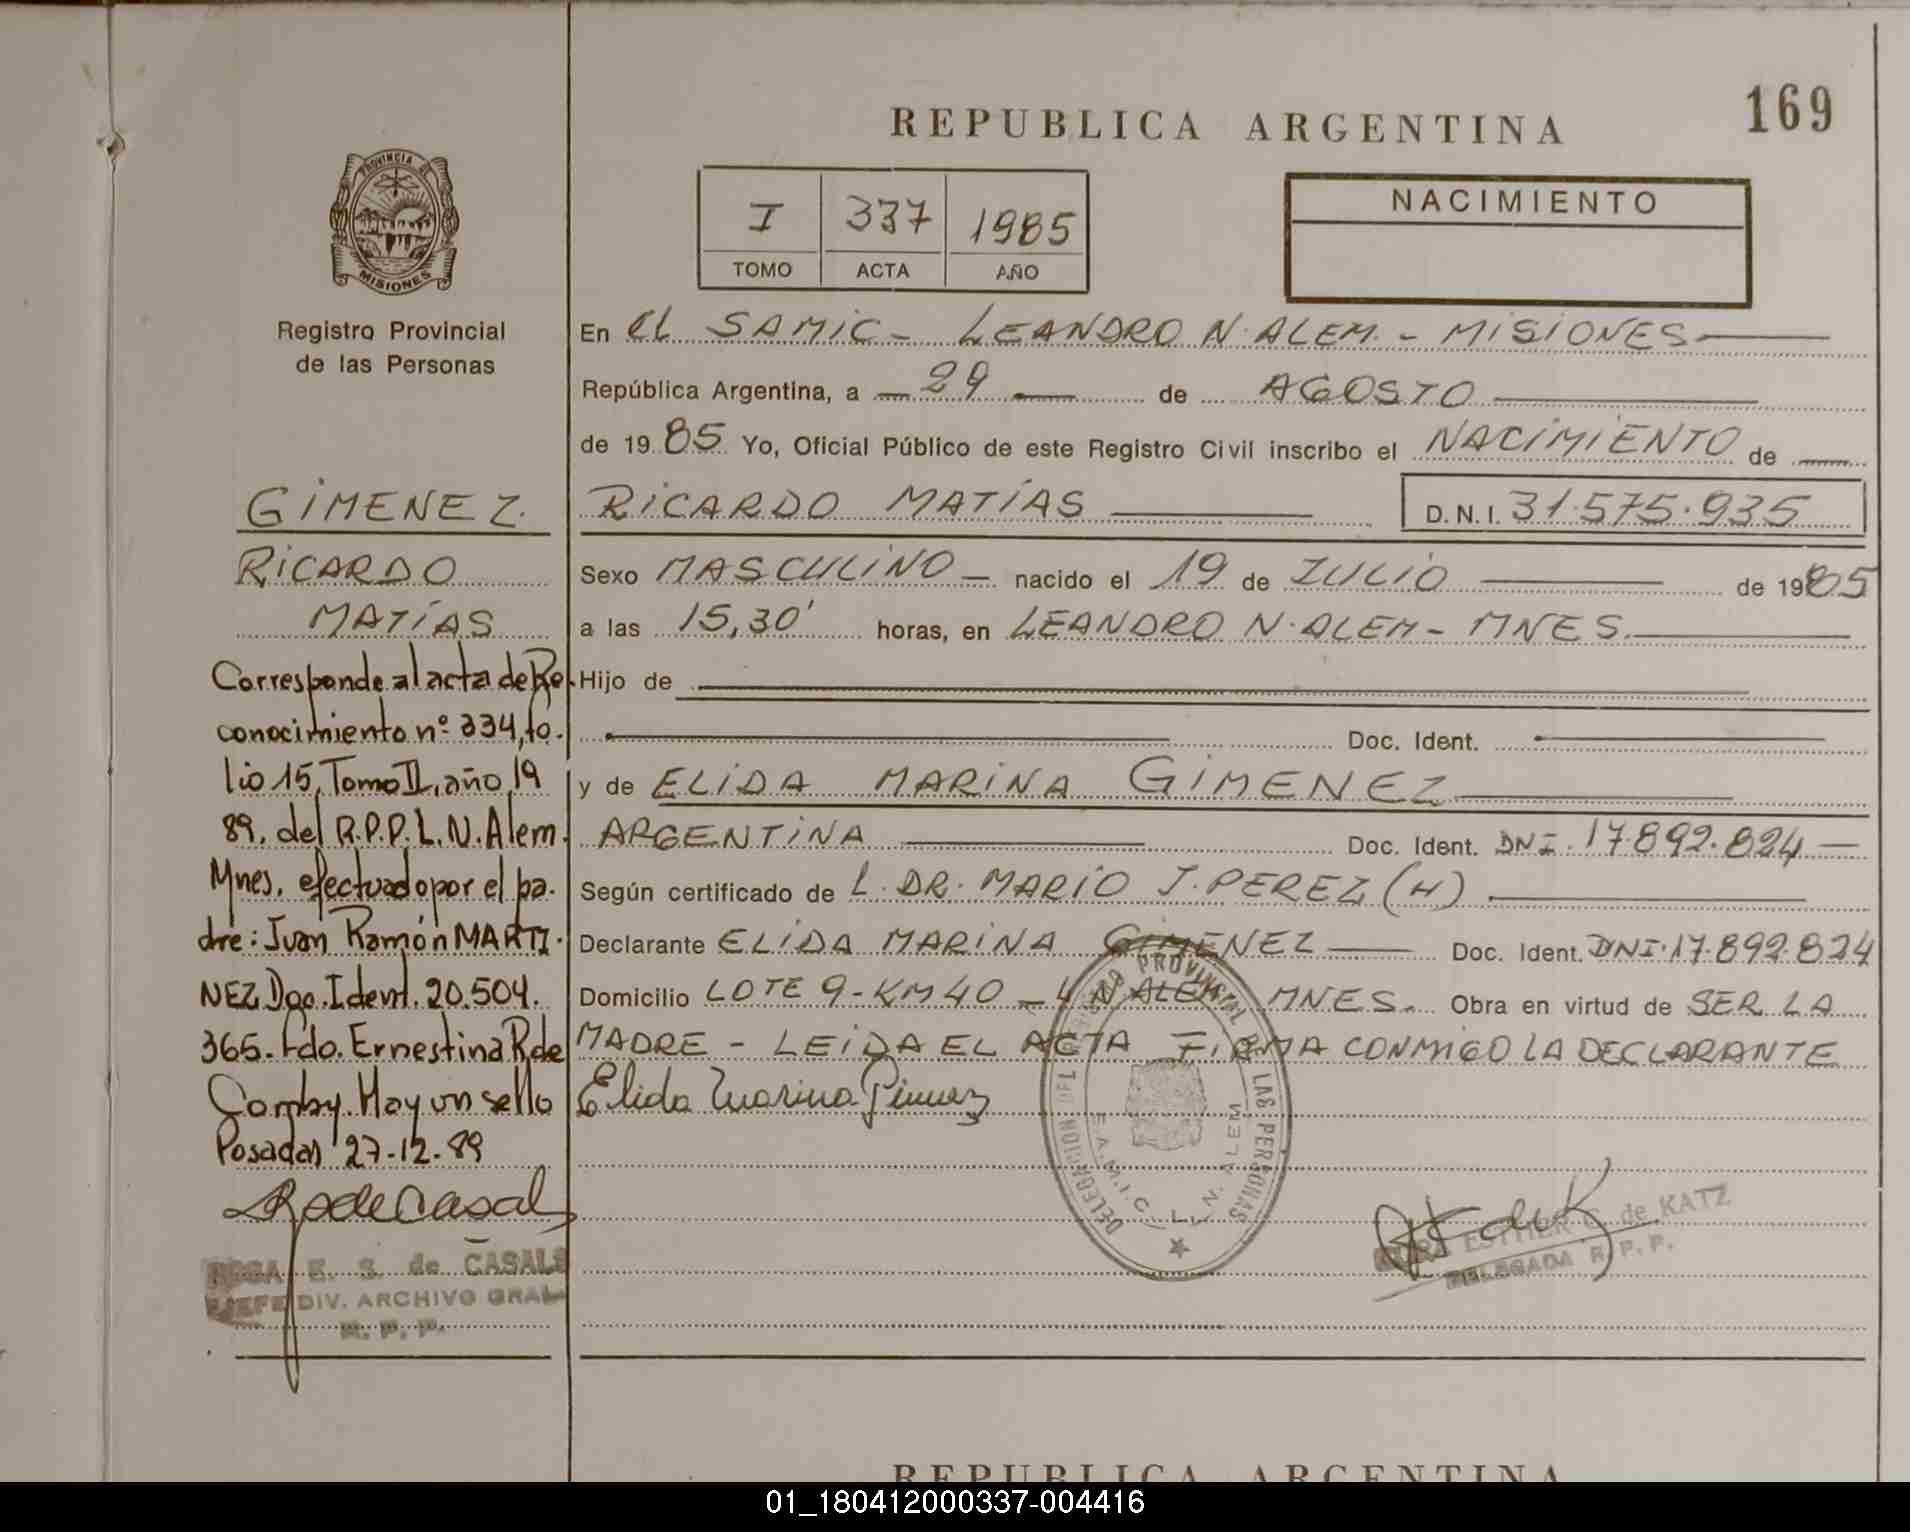 REPUBLICA ARGENTINA
169
PROVINCIA DE
MISIONES
Registro Provincial
de las Personas
I 337 1985
TOMO ACTA AÑO
NACIMIENTO
En el SAMIC - LEANDRO N. ALEM. - MISIONES
República Argentina, a 29 de AGOSTO
de 1985 Yo, Oficial Público de este Registro Civil inscribo el NACIMIENTO de
RICARDO MATÍAS D.N.I. 31.575.935
Sexo MASCULINO - nacido el 19 de JULIO de 1985
a las 15,30' horas, en LEANDRO N. ALEM - MNES.
Hijo de
Doc. Ident.
y de ELIDA MARINA GIMENEZ
ARGENTINA Doc. Ident. DNI. 17.892.824
Según certificado de L. DR. MARIO J. PEREZ (H)
Declarante ELIDA MARINA GIMENEZ Doc. Ident. DNI. 17.892.824
Domicilio LOTE 9 - KM 40 - L N ALEM MNES. Obra en virtud de SER LA
MADRE - LEIDA EL ACTA FIRMA CONMIGO LA DECLARANTE
Elida Marina Gimenez
GIMENEZ.
RICARDO
MATÍAS
Corresponde al acta de Re-
conocimiento nº 334, fo-
lio 15, Tomo II, año 19
89, del R.P.P. L.N. Alem.
Mnes. efectuado por el pa-
dre: Juan Ramón MARTI-
NEZ Doc. Ident. 20.504.
365. Fdo. Ernestina R. de
Hay un sello
Posadas 27-12-89
R de Casals
ROSA E. S. de CASALS
JEFE DIV. ARCHIVO GRAL
R. P. P.
DELEGACION DEL REGISTRO PROVINCIAL DE LAS PERSONAS
L. N. ALEM
ESTHER C. de KATZ
DELEGADA R. P. P.
REPUBLICA ARGENTINA
01_180412000337-004416